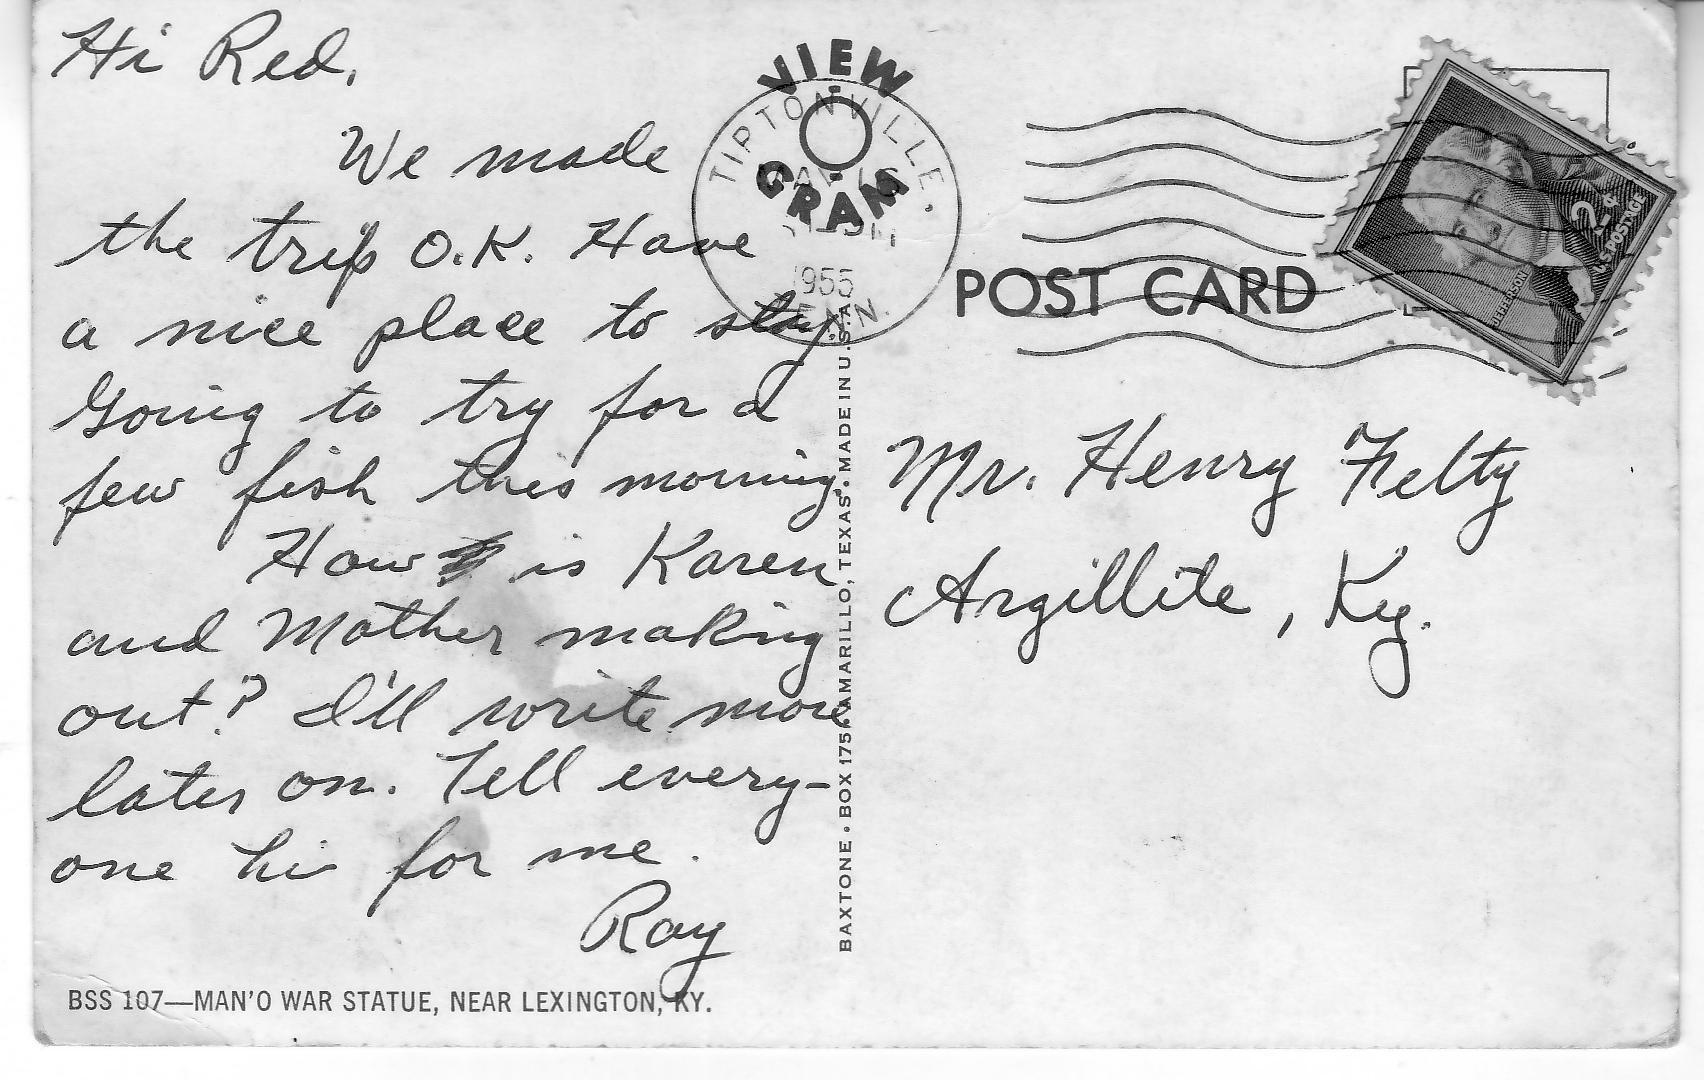 Hi Red,
We made
the trip O.K. Have
a nice place to stay.
Going to try for a
few fish this morning.
How is Karen
and Mother making
out? I'll write more
later on. Tell every-
one hi for me.
Ray
BSS 107—MAN'O WAR STATUE, NEAR LEXINGTON, KY.
VIEW
GRAM
TIPTONVILLE,
MAY
1955
TENN.
BAXTONE • BOX 175 • AMARILLO, TEXAS • MADE IN U.S.A.
POST CARD
2¢
U.S. POSTAGE
JEFFERSON
Mr. Henry Felty
Argillite, Ky.